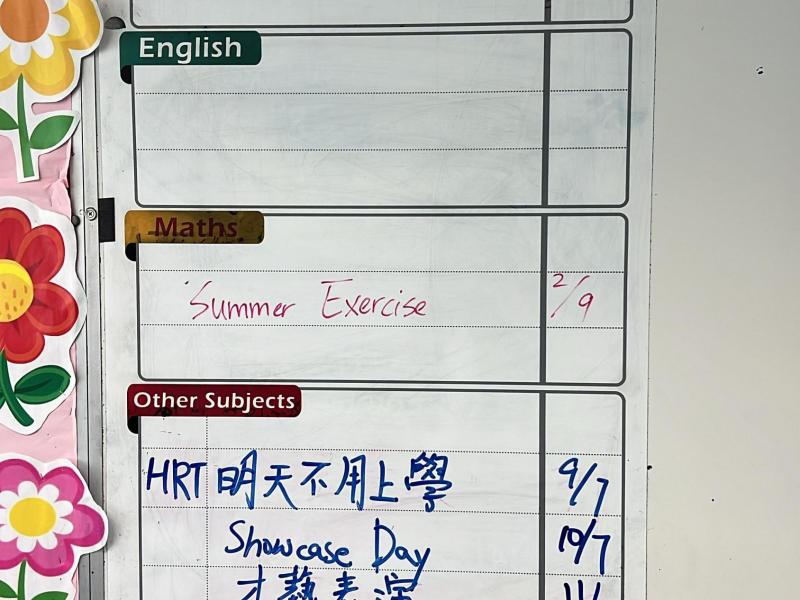 English
Maths
Summer Exercise 2/9
Other Subjects
HRT 明天不用上學 9/7
Showcase Day 10/7
才藝表演